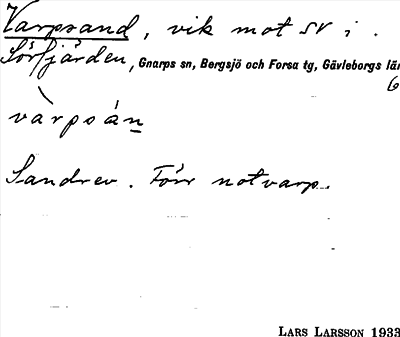 Varpsand, vik mot SV i.
Sörfjärden, Gnarps sn, Bergsjö och Forsa tg, Gävleborgs län
6
va̱rpsán
Sandrev. Förr notvarp.
LARS LARSSON 1933